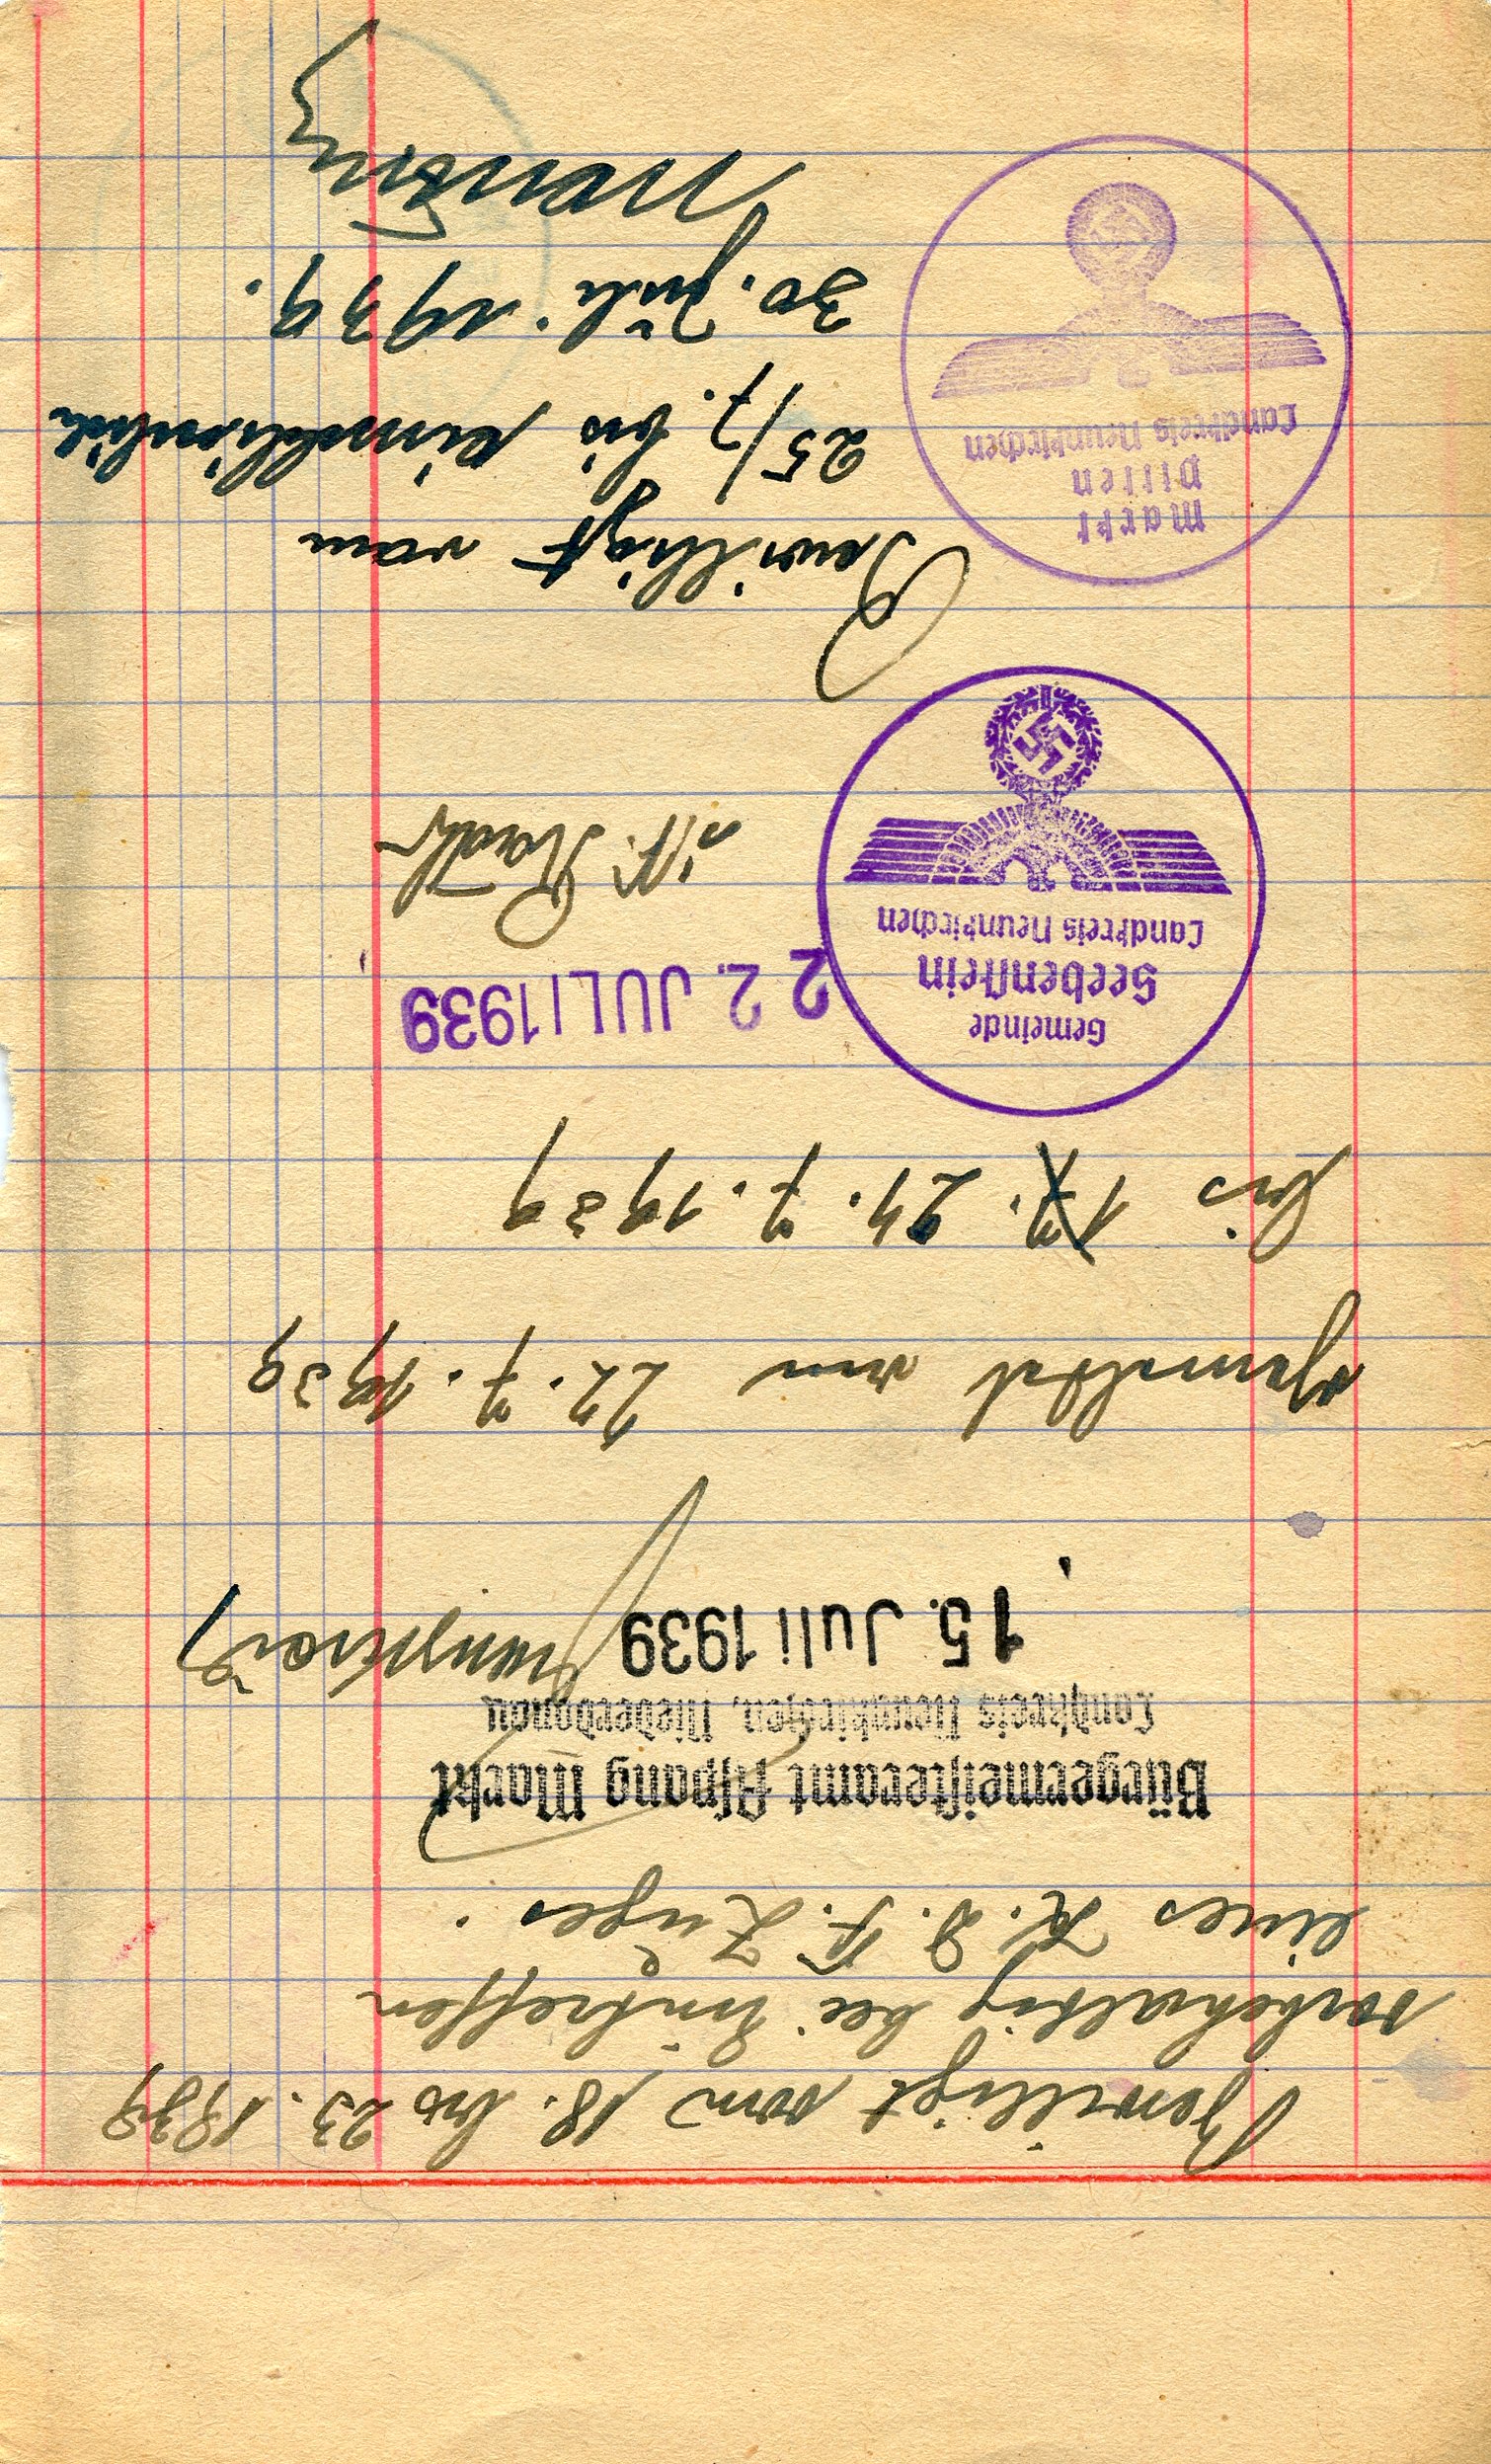 Bewilligt vom 18. bis 23. 1939
vorbehaltlich bei Eintreffen
eines K. d. F. Zuges.
Bürgermeisteramt Aspang Markt
Landkreis Neunkirchen, Niederdonau
15. Juli 1939
Gemeldet vom 22. 7. 1939
bis 17. 24. 7. 1939
Gemeinde
Seebenstein
Landkreis Neunkirchen
22. JULI 1939
Bewilligt vom
25/7. bis einschließlich
30. Juli 1939.
Markt
Pitten
Landkreis Neunkirchen